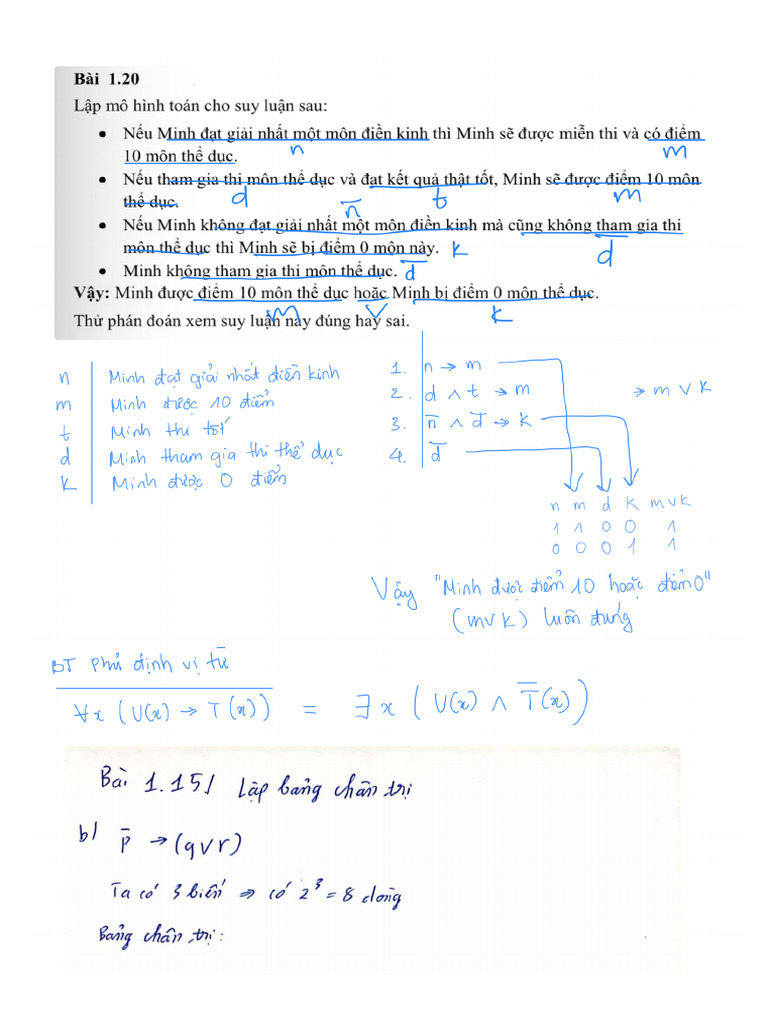 Bài 1.20
Lập mô hình toán cho suy luận sau:
• Nếu Minh đạt giải nhất một môn điền kinh thì Minh sẽ được miễn thi và có điểm
n m
10 môn thể dục.
• Nếu tham gia thi môn thể dục và đạt kết quả thật tốt, Minh sẽ được điểm 10 môn
d t m
thể dục.
n̅
• Nếu Minh không đạt giải nhất một môn điền kinh mà cũng không tham gia thi
môn thể dục thì Minh sẽ bị điểm 0 môn này. k d̅
• Minh không tham gia thi môn thể dục. d̅
Vậy: Minh được điểm 10 môn thể dục hoặc Minh bị điểm 0 môn thể dục.
m v k
Thử phán đoán xem suy luận này đúng hay sai.
n | Minh đạt giải nhất điền kinh
m | Minh được 10 điểm
t | Minh thi tốt
d | Minh tham gia thi thể dục
k | Minh được 0 điểm
1. n → m
2. d ∧ t → m → m v k
3. n̅ ∧ d̅ → k
4. d̅
n m d k mvk
1 1 0 0 1
0 0 0 1 1
Vậy "Minh được điểm 10 hoặc điểm 0"
(mvk) luôn đúng
BT phủ định vị từ
∀x (U(x) → T(x)) = ∃x (U(x) ∧ T̅(x))
Bài 1.15/ Lập bảng chân trị
b/ p̅ → (qvr)
Ta có 3 biến ⇒ có 2³ = 8 dòng
Bảng chân trị: